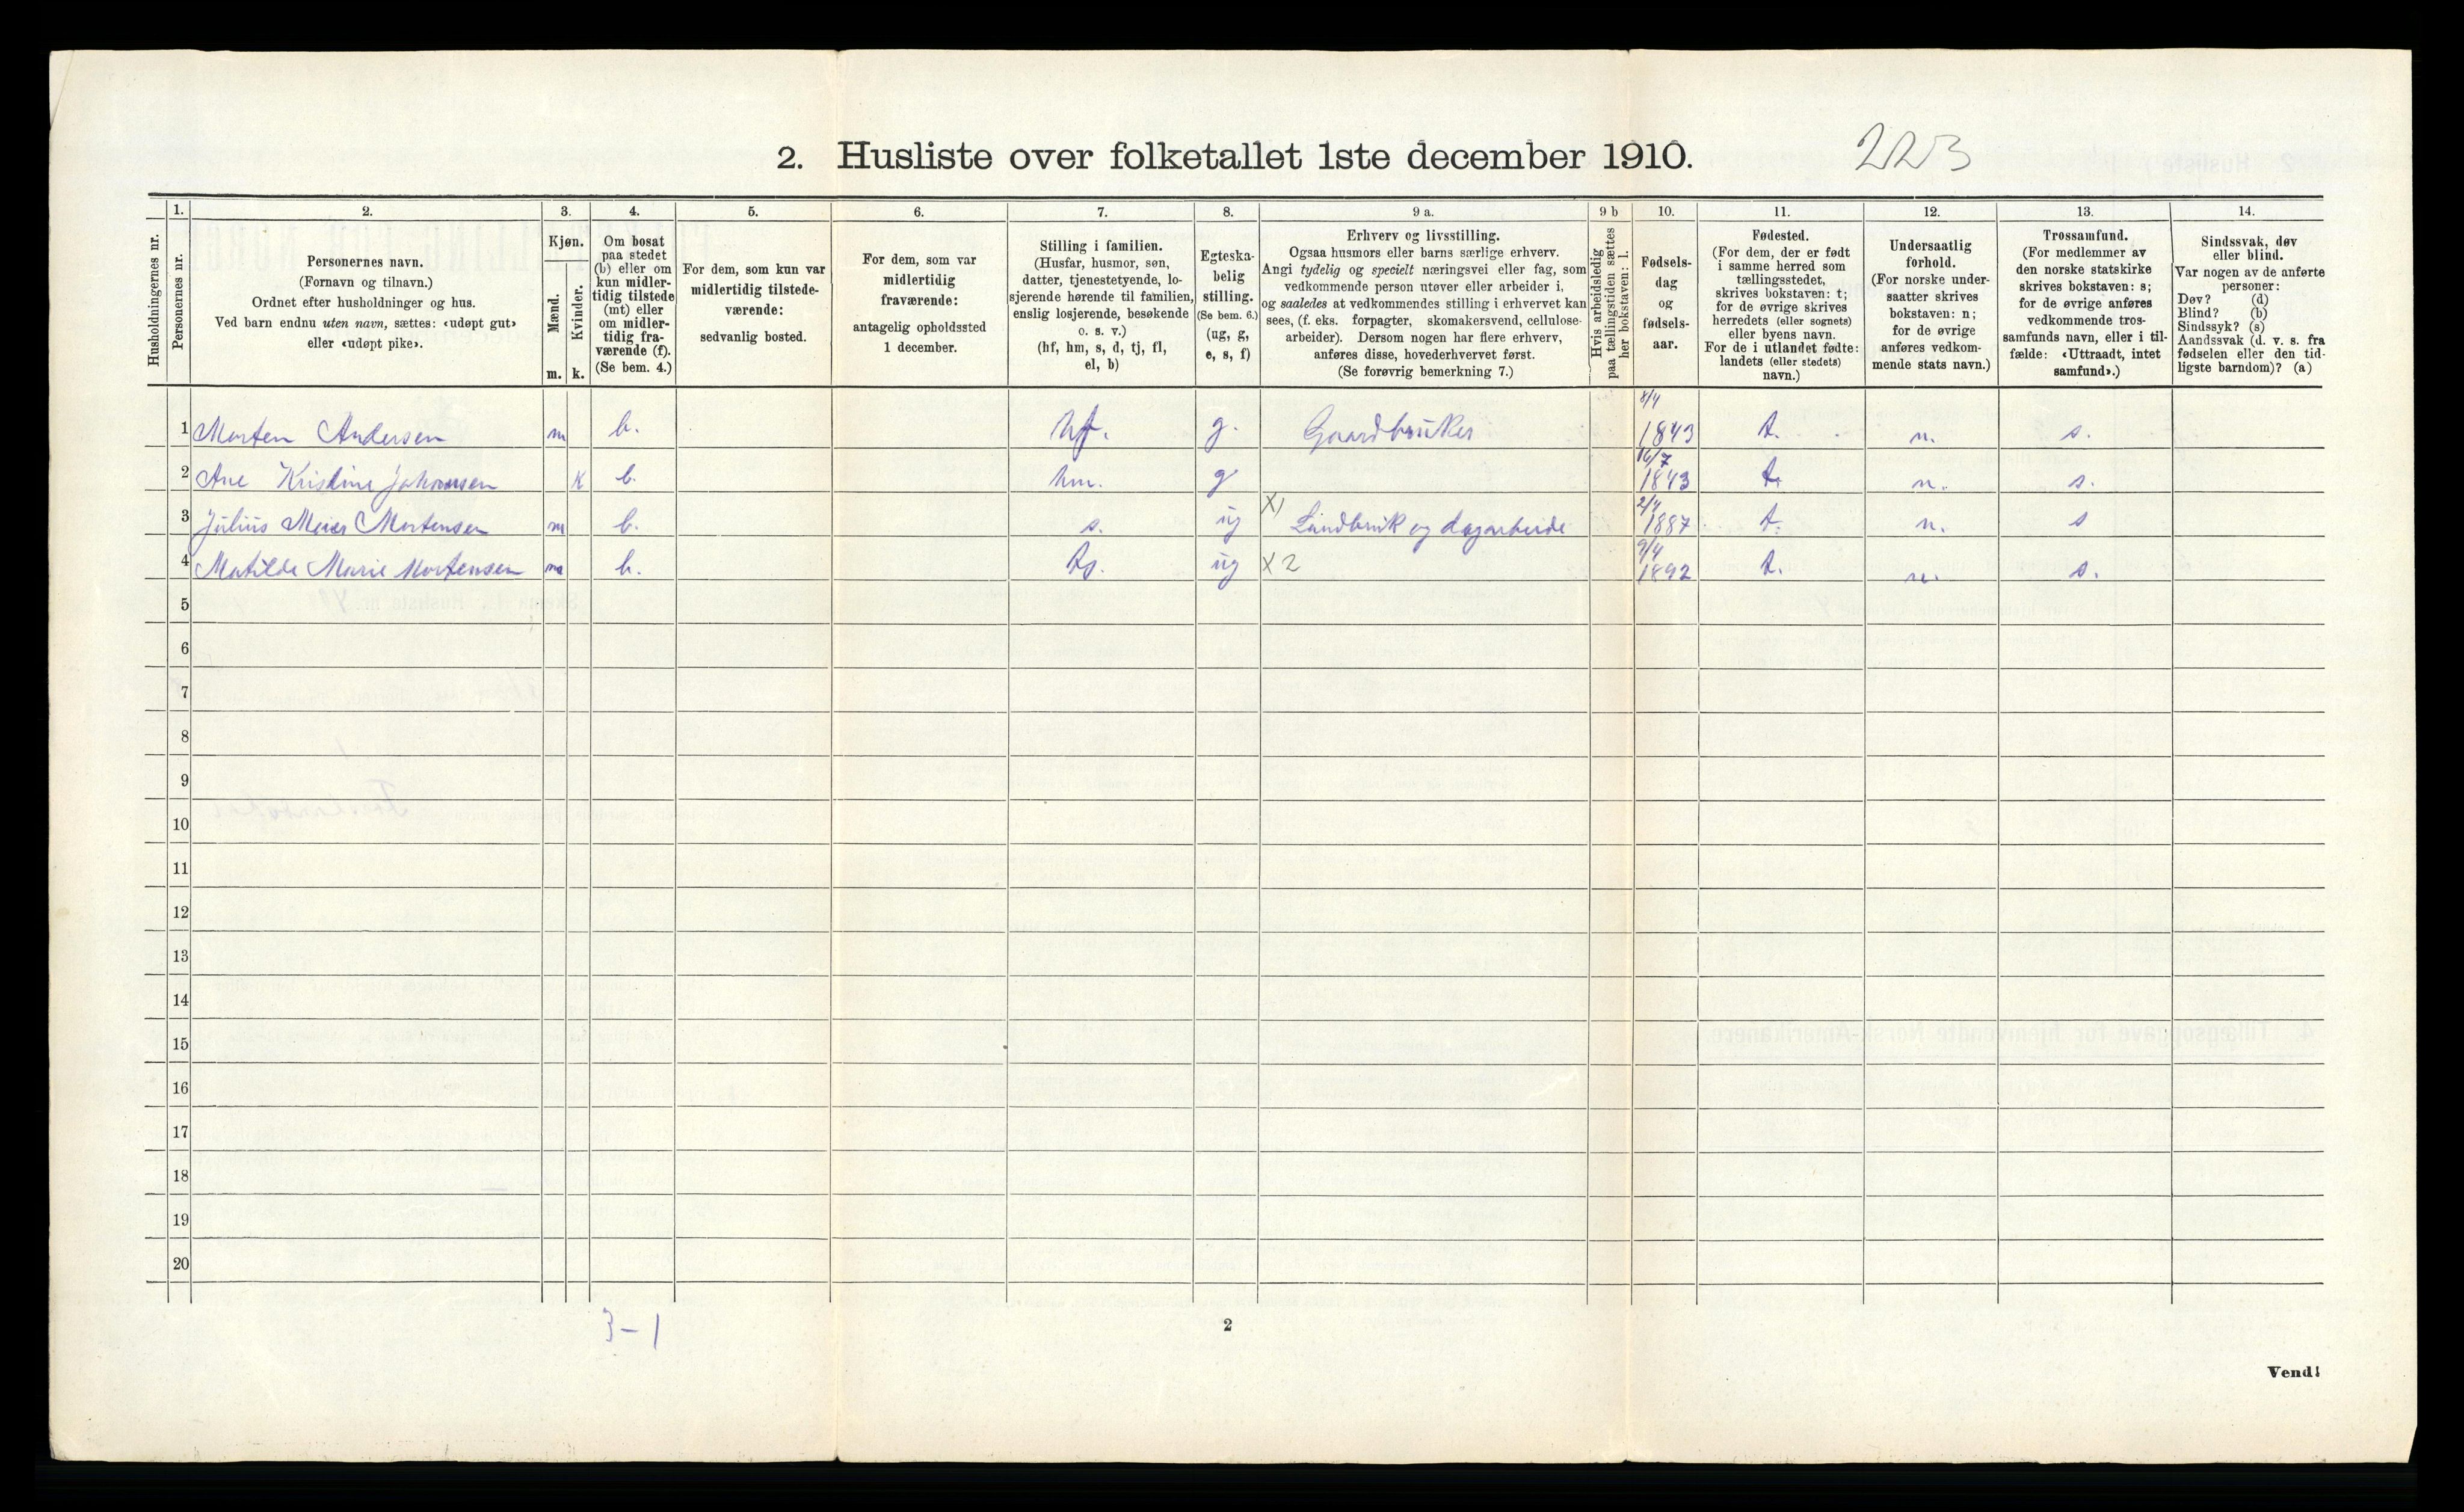 2. Husliste over folketallet 1ste december 1910. 223
Husholdningernes nr.
1. Personernes nr.
2. Personernes navn.
(Fornavn og tilnavn.)
Ordnet efter husholdninger og hus.
Ved barn endnu uten navn, sættes: «udøpt gut»
eller «udøpt pike».
3. Kjøn.
Mænd. Kvinder.
m. k.
4. Om bosat
paa stedet
(b) eller om
kun midler-
tidig tilstede
(mt) eller
om midler-
tidig fra-
værende (f).
(Se bem. 4.)
5. For dem, som kun var
midlertidig tilstede-
værende:
sedvanlig bosted.
6. For dem, som var
midlertidig
fraværende:
antagelig opholdssted
1 december.
7. Stilling i familien.
(Husfar, husmor, søn,
datter, tjenestetyende, lo-
sjerende hørende til familien,
enslig losjerende, besøkende
o. s. v.)
(hf, hm, s, d, tj, fl,
el, b)
8. Egteska-
belig
stilling.
(Se bem. 6.)
(ug, g,
e, s, f)
9 a. Erhverv og livsstilling.
Ogsaa husmors eller barns særlige erhverv.
Angi tydelig og specielt næringsvei eller fag, som
vedkommende person utøver eller arbeider i,
og saaledes at vedkommendes stilling i erhvervet kan
sees, (f. eks. forpagter, skomakersvend, cellulose-
arbeider). Dersom nogen har flere erhverv,
anføres disse, hovederhvervet først.
(Se forøvrig bemerkning 7.)
9 b Hvis arbeidsledig
paa tællingstiden sættes
her bokstaven: l.
10. Fødsels-
dag
og
fødsels-
aar.
11. Fødested.
(For dem, der er født
i samme herred som
tællingsstedet,
skrives bokstaven: t;
for de øvrige skrives
herredets (eller sognets)
eller byens navn.
For de i utlandet fødte:
landets (eller stedets)
navn.)
12. Undersaatlig
forhold.
(For norske under-
saatter skrives
bokstaven: n;
for de øvrige
anføres vedkom-
mende stats navn.)
13. Trossamfund.
(For medlemmer av
den norske statskirke
skrives bokstaven: s;
for de øvrige anføres
vedkommende tros-
samfunds navn, eller i til-
fælde: «Uttraadt, intet
samfund».)
14. Sindssvak, døv
eller blind.
Var nogen av de anførte
personer:
Døv? (d)
Blind? (b)
Sindssyk? (s)
Aandssvak (d. v. s. fra
fødselen eller den tid-
ligste barndom)? (a)
1 Morten Andersen m b. hf. g. Gaardbruker 8/4 1843 t. n. s.
2 Ane Kristine Johannsen k b. hm. g 16/7 1843 t. n. s.
3 Julius Meier Mortensen m b. s. ug X1 Landbruk og dagarbeide 1887 t. n. s
4 Matilde Marie Mortensen m b. ug X2 9/4 1892 t. n. s.
5
6
7
8
9
10
11
12
13
14
15
16
17
18
19
20
3-1
2
Vend!